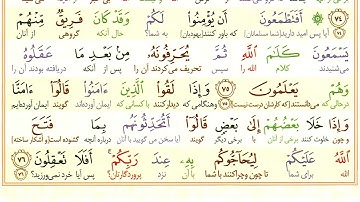 ۷۴ أَفَتَطْمَعُونَ أَن يُؤْمِنُوا۟ لَكُمْ وَقَدْ كَانَ فَرِيقٌ مِّنْهُمْ
آیا پس امید دارید (شما مسلمانان) که باور کنند (یهودیان) به شما؟ و حال آنکه گروهی از آنان
يَسْمَعُونَ كَلَـٰمَ ٱللَّهِ ثُمَّ يُحَرِّفُونَهُۥ مِنۢ بَعْدِ مَا عَقَلُوهُ
میشنیدند کلام الله را سپس تحریف می‌کردند آن را پس از آنکه دریافته بودند آن را
وَهُمْ يَعْلَمُونَ ۷۵ وَإِذَا لَقُوا۟ ٱلَّذِينَ ءَامَنُوا۟ قَالُوٓا۟ ءَامَنَّا
درحالی که می‌دانستند (که کارشان درست نیست) وهنگامی که دیدار کنند با کسانی که ایمان آورده‌اند گویند ایمان آورده‌ایم
وَإِذَا خَلَا بَعْضُهُمْ إِلَىٰ بَعْضٍ قَالُوٓا۟ أَتُحَدِّثُونَهُم بِمَا فَتَحَ
و چون خلوت کنند برخی از آنان با برخی دیگر گویند آیا سخن می‌گویید با آنان درباره آنچه گشوده است (و آشکار ساخته)
ٱللَّهُ عَلَيْكُمْ لِيُحَآجُّوكُم بِهِۦ عِندَ رَبِّكُمْ ۚ أَفَلَا تَعْقِلُونَ ۷۶
الله برای شما تا چون و چرا کنند با شما بدان نزد پروردگارتان؟ آیا پس خرد نمی‌ورزید؟